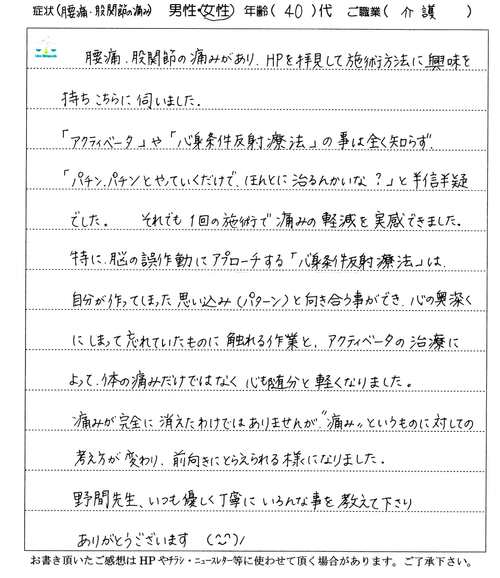 症状(腰痛・股関節の痛み) 男性・女性 年齢(40)代 ご職業(介護)
腰痛、股関節の痛みがあり、HPを拝見して施術方法に興味を
持ちこちらに伺いました。
「アクティベータ」や「心身条件反射療法」の事は全く知らず
「パチン、パチンとやっていくだけで、ほんとに治るんかいな?」と半信半疑
でした。 それでも1回の施術で痛みの軽減を実感できました。
特に、脳の誤作動にアプローチする「心身条件反射療法」は、
自分が作ってしまった思い込み(パターン)と向き合う事ができ、心の奥深く
にしまって忘れていたものに触れる作業と、アクティベータの治療に
よって、体の痛みだけではなく心も随分と軽くなりました。
痛みが完全に消えたわけではありませんが、"痛み"というものに対しての
考え方が変わり、前向きにとらえられる様になりました。
野間先生、いつも優しく丁寧にいろんな事を教えて下さり
ありがとうございます (^^)/
お書き頂いたご感想はHPやチラシ・ニュースレター等に使わせて頂く場合があります。ご了承下さい。